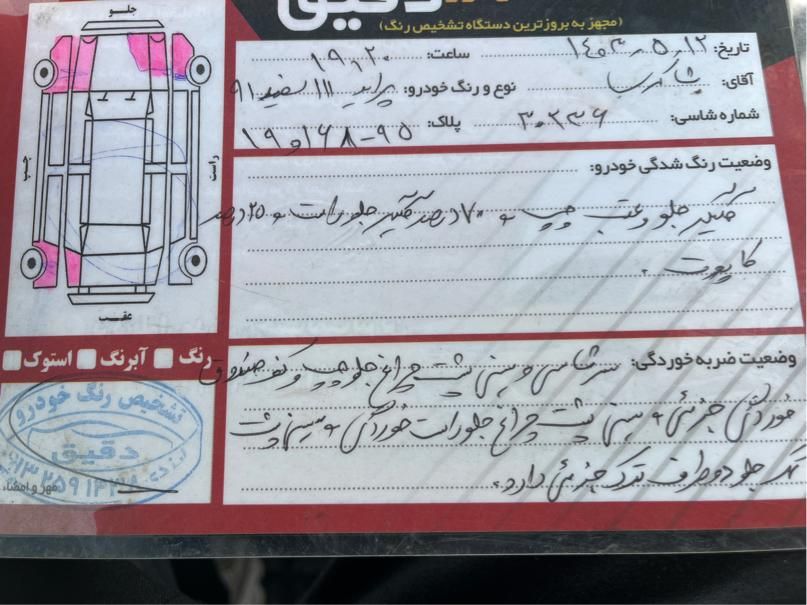 دقیق
(مجهز به بروزترین دستگاه تشخیص رنگ)
تاریخ: ۱۴۰۳،۵،۱۲ ساعت: ۱۹،۲۰
آقای: نوع و رنگ خودرو: پراید ۱۱۱ سفید ۹۱
شماره شاسی: ۳۰۳۳۶ پلاک: ۹۵-۱۶۸و۱۹
وضعیت رنگ شدگی خودرو:
گلگیر جلو و عقب چپ و ۷۰درصد گلگیر جلو راست و ۲۵ درصد
کاپوت.
وضعیت ضربه خوردگی: سرشاسی و سینی پشت چراغ جلو چپ و کف صندوق
خوردگی جزئی و سینی پشت چراغ جلو راست خوردگی و سینی پشت
جلو دو طرف ترک جزئی دارد.
جلو
چپ
راست
عقب
رنگ آبرنگ استوک
تشخیص رنگ خودرو
دقیق
مهر و امضاء